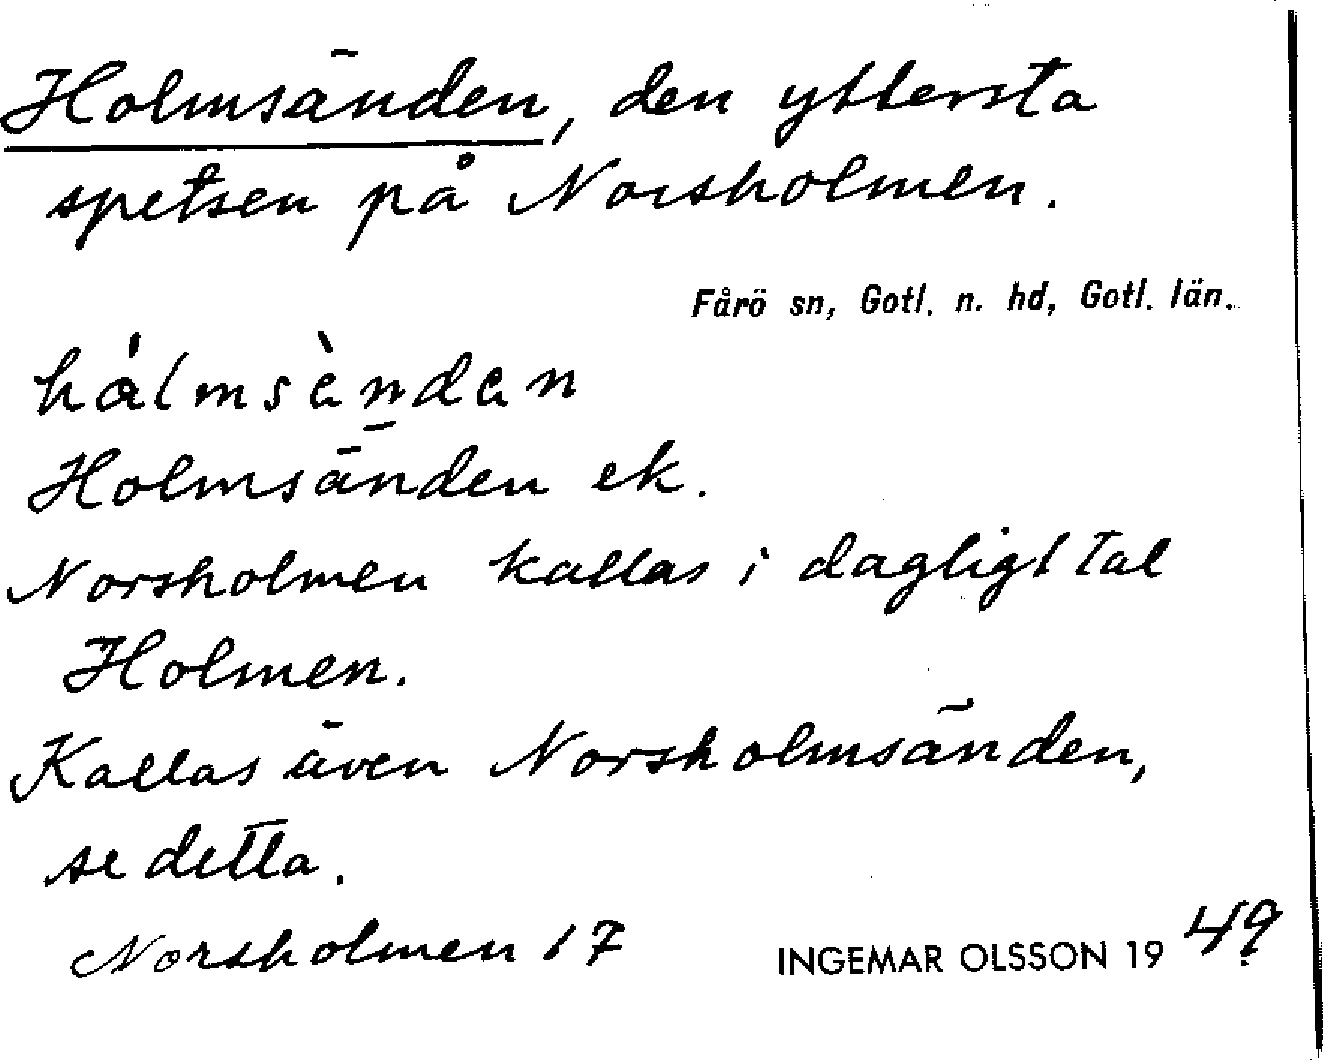 Holmsänden, den yttersta
spetsen på Norsholmen.
Fårö sn, Gotl. n. hd, Gotl. län.
hålmsèndan
Holmsänden ek.
Norsholmen kallas i dagligt tal
Holmen.
Kallas även Norsholmsänden,
se detta.
Norsholmen 17
INGEMAR OLSSON 1949